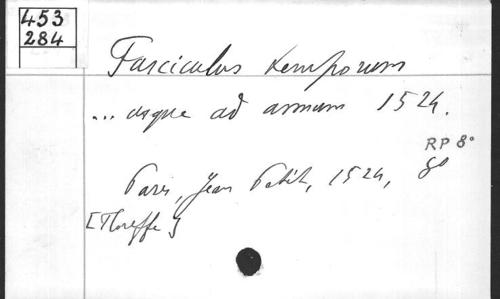 453
284
Fasciculus temporum
... usque ad annum 1524.
RP 8°
Paris, Jean Petit, 1524, 8°
[Floreffe]